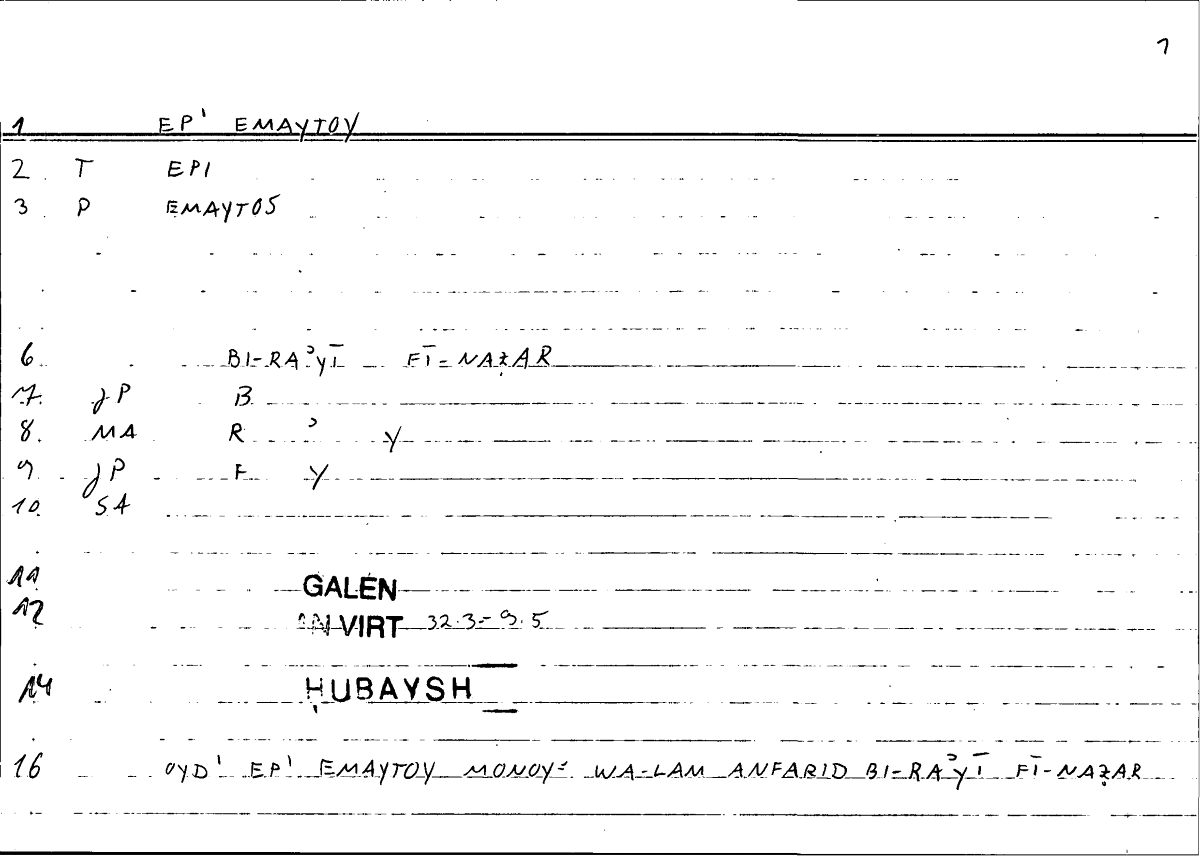 1
1 EP' EMAYTOY
2 T EPI
3 P EMAYTOS
6. BI-RAʾYĪ FĪ-NAẒAR
7. JP B
8. MA R ʾ Y
9 JP F Y
10. SA
11 GALEN
12 AN VIRT 32.3-9.5
14 ḤUBAYSH
16 OYD' EP' EMAYTOY MONOY: WA-LAM ANFARID BI-RAʾYĪ FĪ-NAẒAR